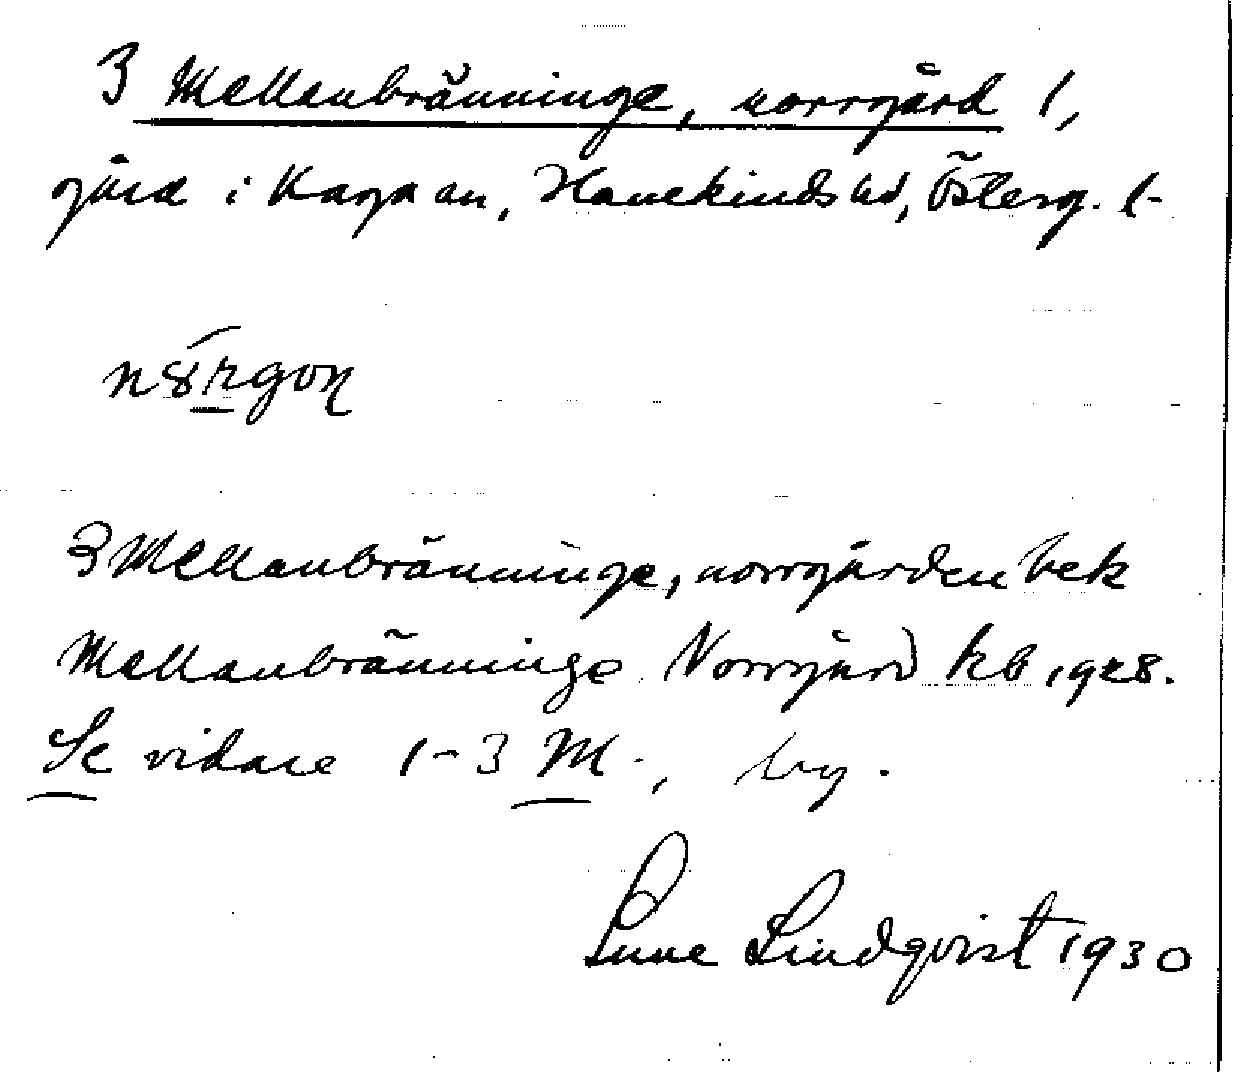 3 Mellanbränninge, norrgård 1,
gård i Kaga sn, Hanekinds hd, Österg. l.
3 Mellanbränninge, norrgården bek
Mellanbränninge Norrgård kb 1928.
Se vidare 1-3 M., by.
Sune Lindqvist 1930